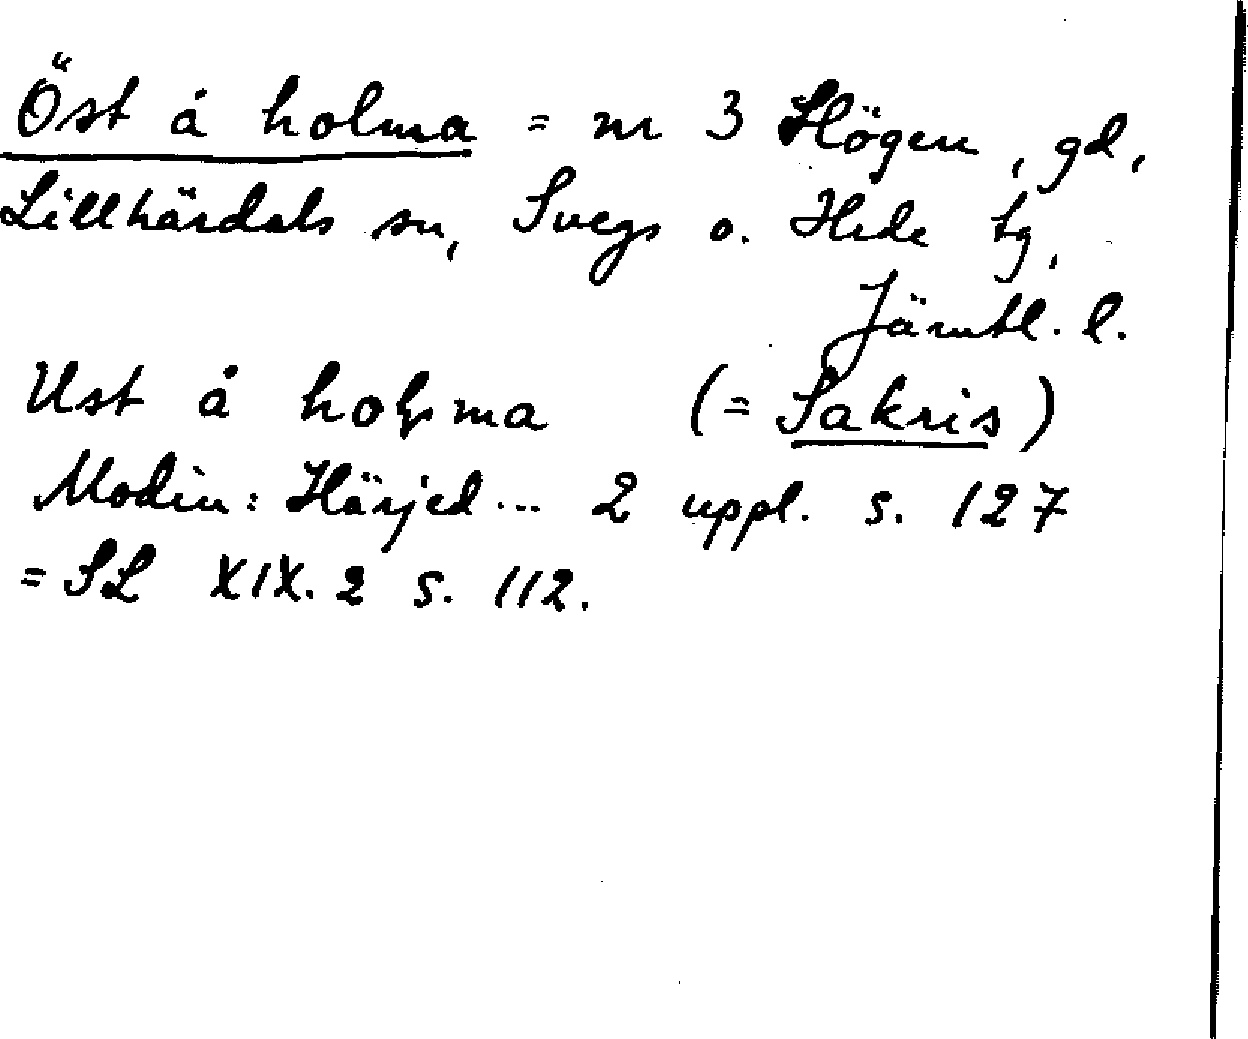 Öst å holma = nr 3 Högen, gd,
Lillhärdals sn, Svegs o. Hede tg,
Jämtl. l.
Ust å holma (= Sakris)
Modin: Härjed... 2 uppl. s. 127
= SL XIX. 2 s. 112.